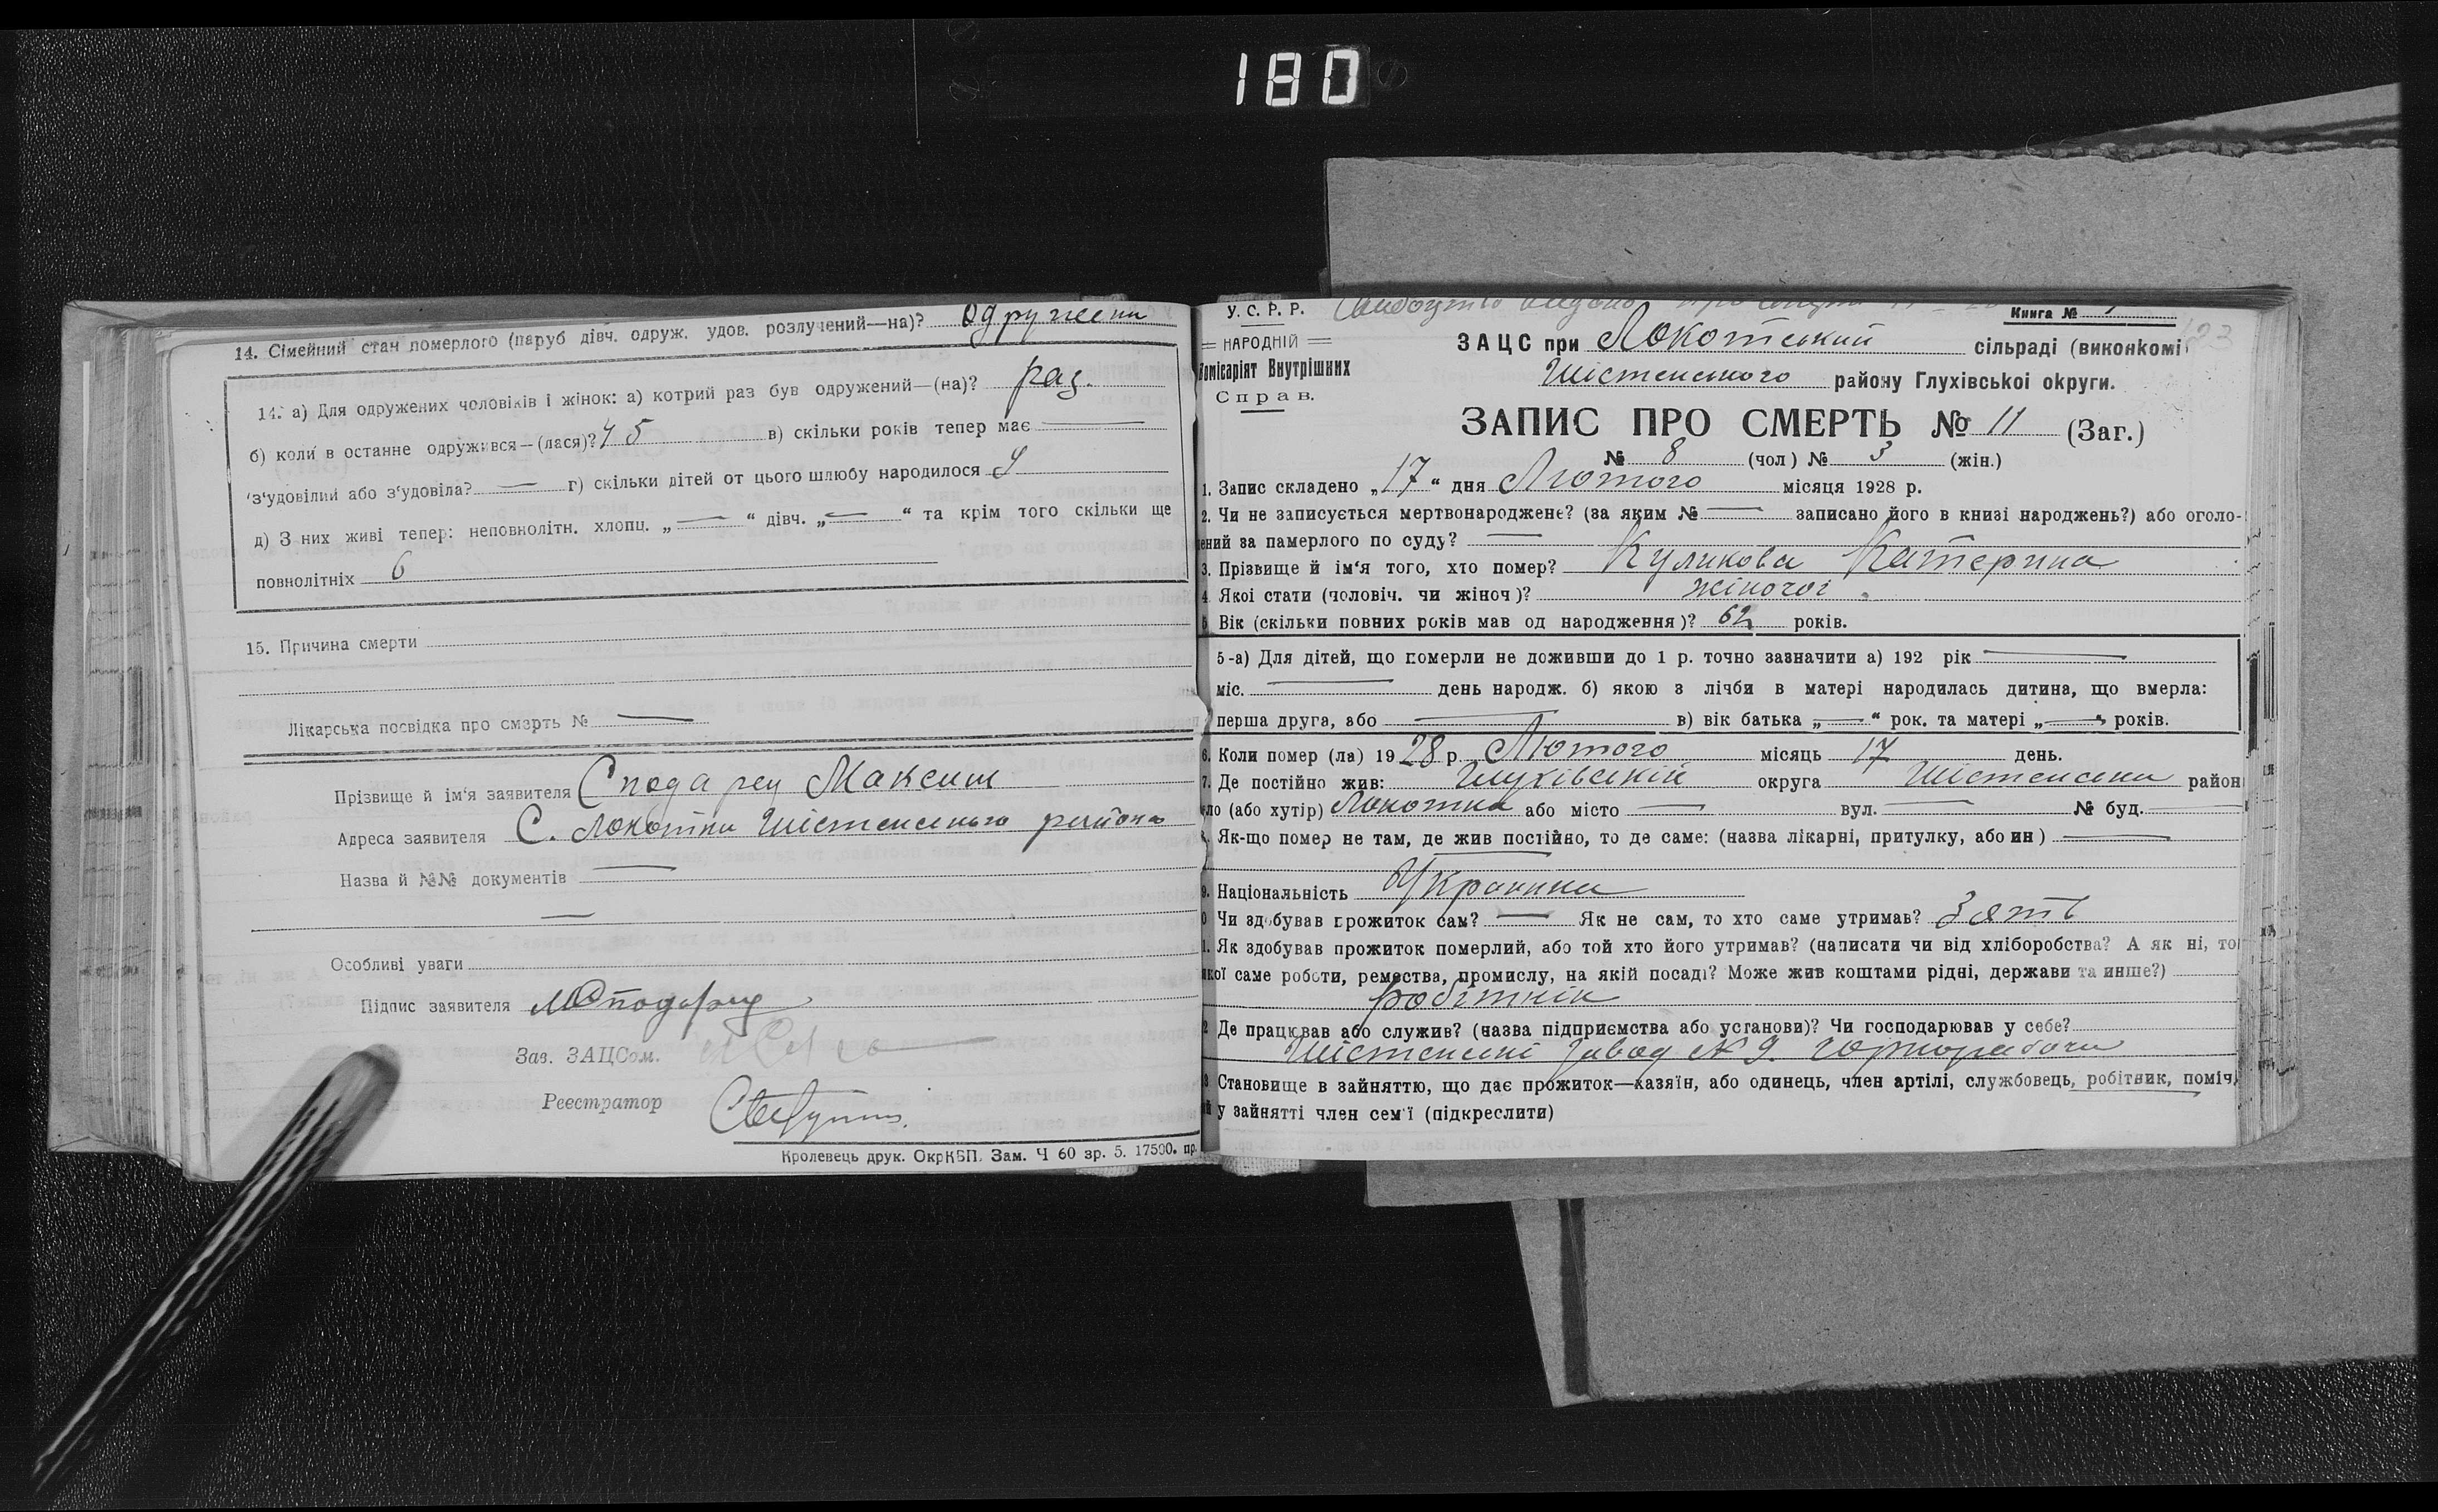 180
14. Сімейний стан померлого (паруб дівч. одруж. удов. розлучений—на)? Одружени
14. а) Для одружених чоловіків і жінок: а) котрий раз був одружений—(на)? раз.
б) коли в останне одружився—(лася)? 45 в) скільки років тепер має —
з'удовілий або з'удовіла? — г) скільки дітей от цього шлюбу народилося 9
д) З них живі тепер: неповнолітн. хлопц. „—“ дівч. „—“ та крім того скільки ще
повнолітніх 6
15. Причина смерти
Лікарська посвідка про смерть № —
Прізвище й ім'я заявителя Сподарец Максим
Адреса заявителя С. Локотки Шістенського района
Назва й №№ документів —
—
Особливі уваги
Підпис заявителя МСподарец
Зав. ЗАЦСом.
Реєстратор
Кролевець друк. ОкрКВП. Зам. Ч 60 зр. 5. 17500. пр.
У. С. Р. Р.
Книга №
НАРОДНІЙ
Комісаріят Внутрішних
Справ.
ЗАЦС при Локотський сільраді (виконкомі
Шістенського району Глухівської округи.
ЗАПИС ПРО СМЕРТЬ № 11 (Заг.)
№ 8 (чол) № 3 (жін.)
1. Запис складено „17“ дня Лютого місяця 1928 р.
2. Чи не записується мертвонароджене? (за яким № — записано його в книзі народжень?) або оголо-
ений за памерлого по суду? —
3. Прізвище й ім'я того, хто помер? Куликова Катерина
4. Якої стати (чоловіч. чи жіноч)? жіночої.
5 Вік (скільки повних років мав од народження)? 62 років.
5-а) Для дітей, що померли не доживши до 1 р. точно зазначити а) 192 рік —
міс. — день народж. б) якою з лічби в матері народилась дитина, що вмерла:
перша друга, або — в) вік батька „—“ рок. та матері „—“ років.
6. Коли помер (ла) 1928 р. Лютого місяць 17 день.
7. Де постійно жив: Глухівській округа Шістенськи район
ело (або хутір) Локотки або місто — вул. — № буд. —
Як-що помер не там, де жив постійно, то де саме: (назва лікарні, притулку, або ин) —
—
9. Національність Українка
0 Чи здобував прожиток сам? — Як не сам, то хто саме утримав? Зять
1. Як здобував прожиток померлий, або той хто його утримав? (написати чи від хліборобства? А як ні, то
якої саме роботи, ремества, промислу, на якій посаді? Може жив коштами рідні, держави та инше?)
Робітнік
2 Де працював або служив? (назва підприємства або установи)? Чи господарював у себе?
Шістенскі завод № 9. чорнорабочи
3 Становище в зайняттю, що дає прожиток—хазяїн, або одинець, член артілі, службовець, робітник, поміч.
й у зайнятті член сем'ї (підкреслити)